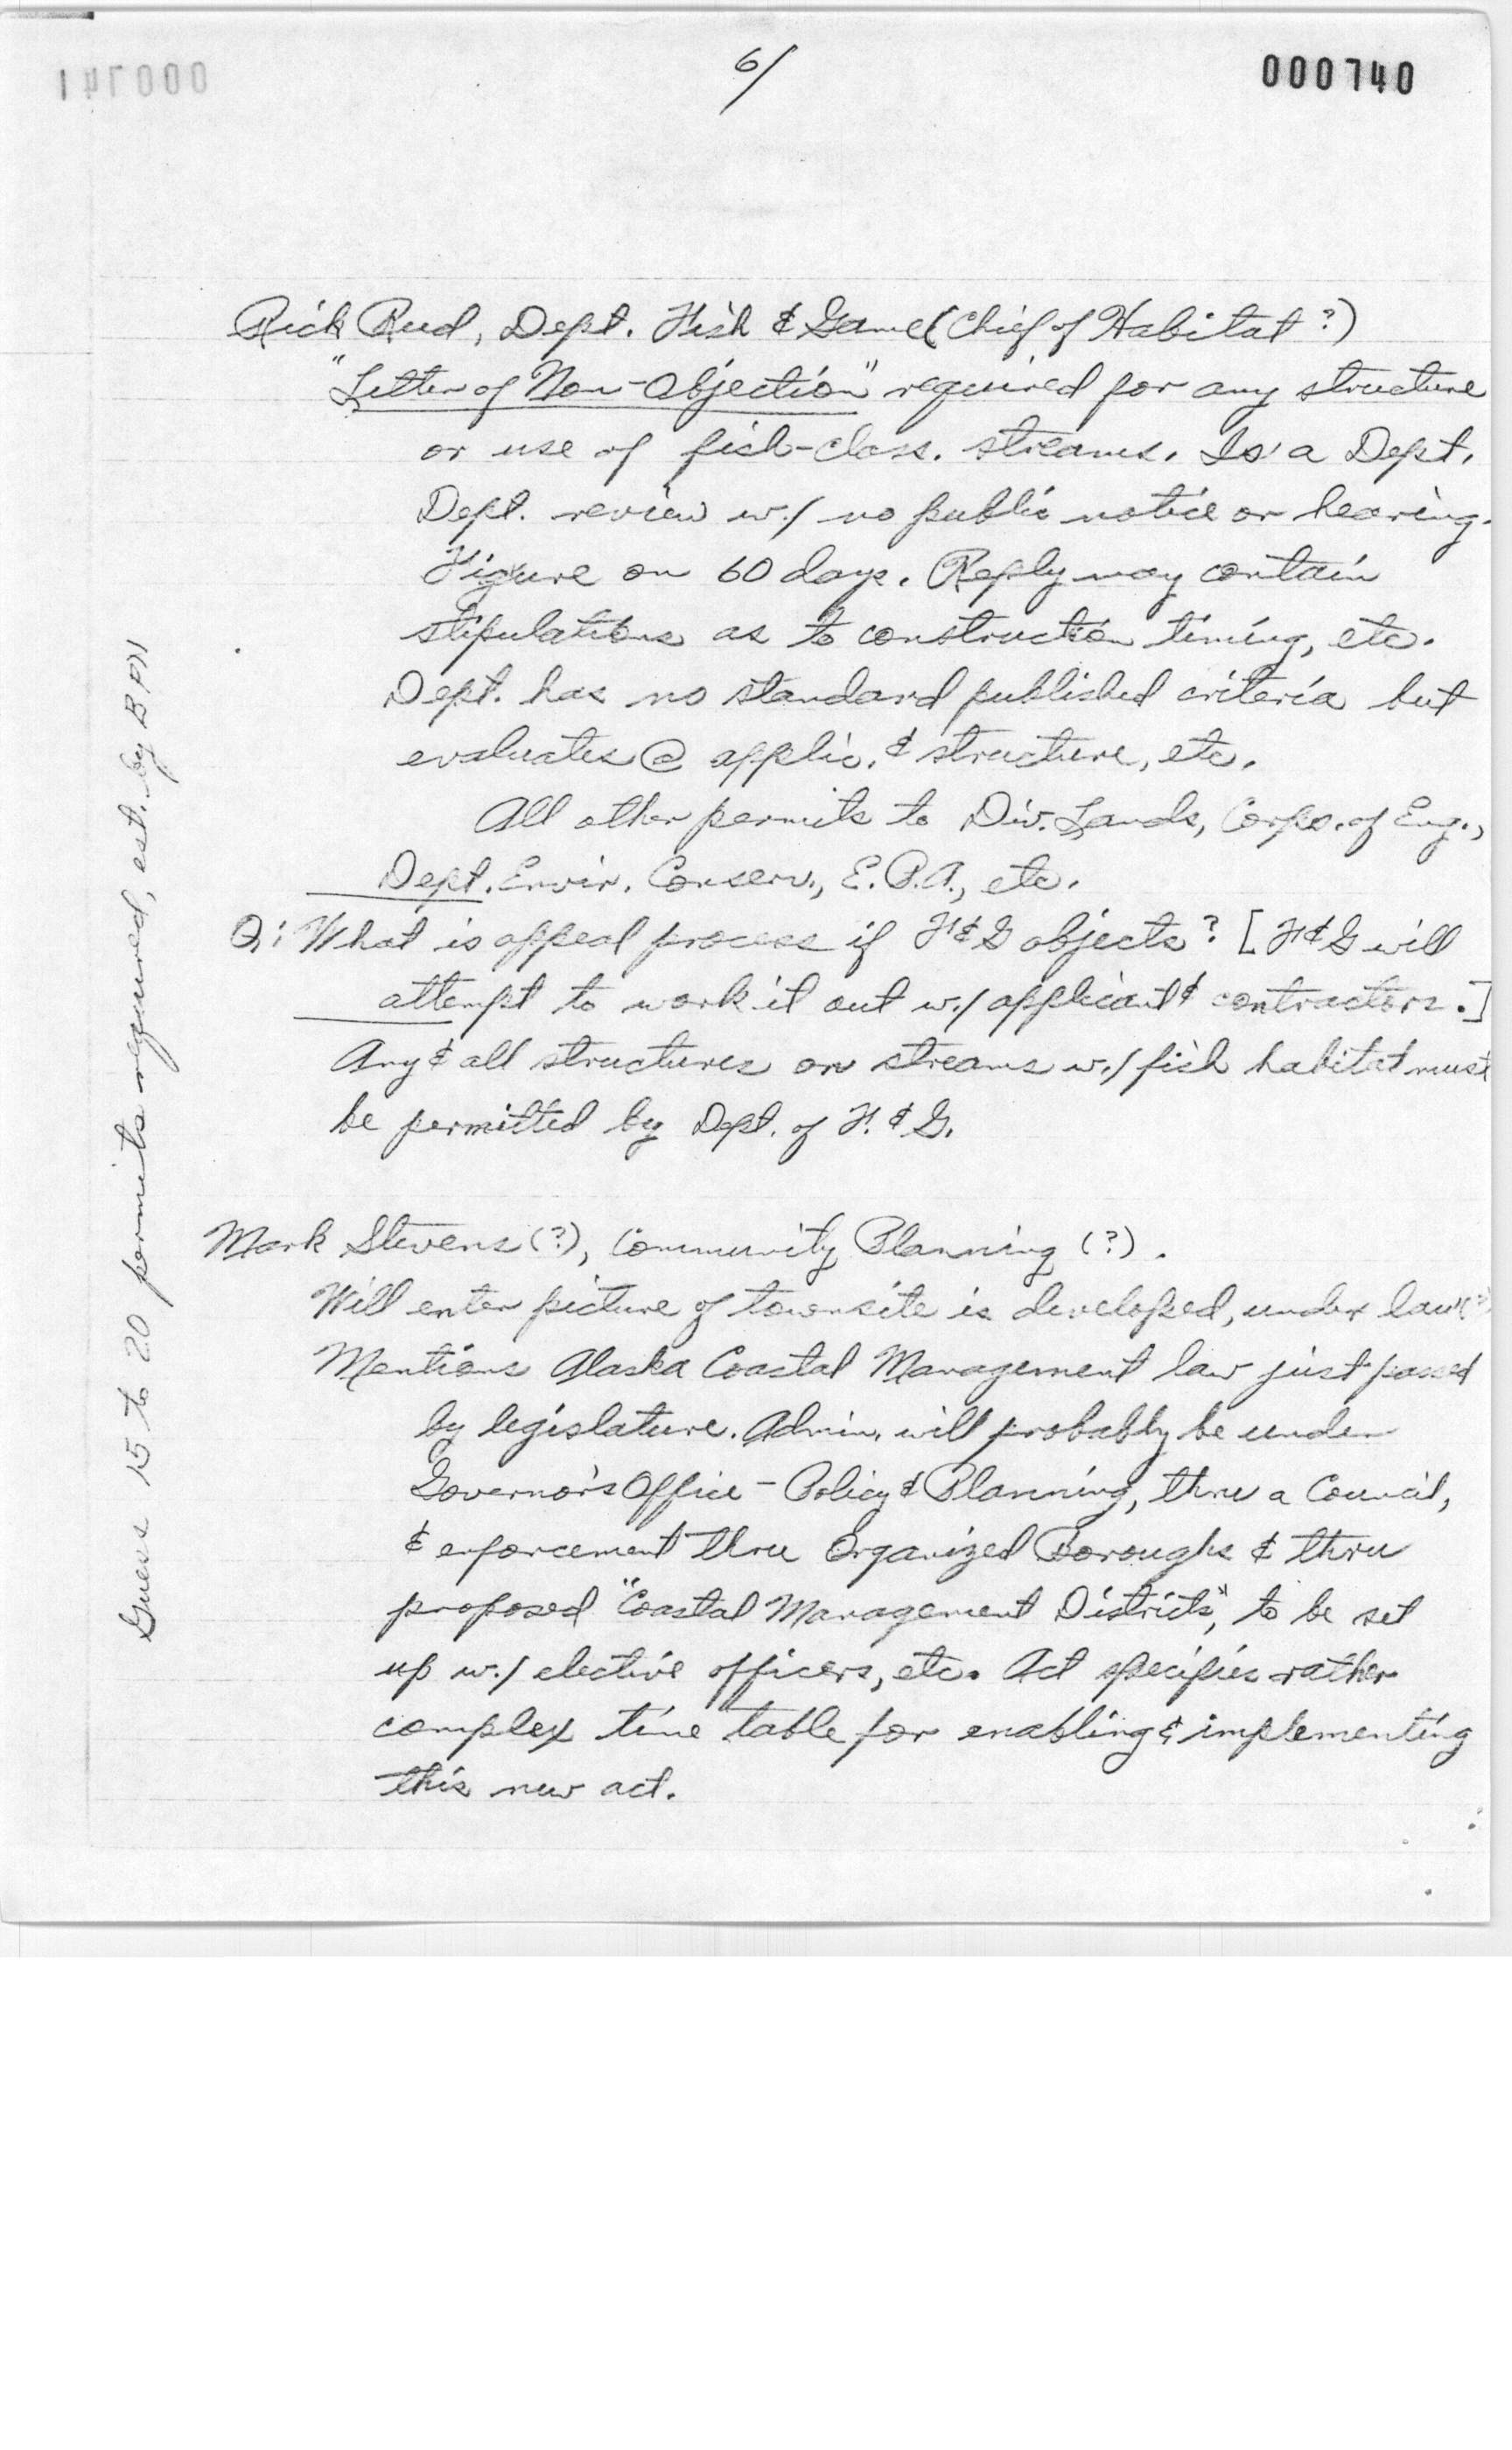 6/
000740
Rick Reed, Dept. Fish & Game (Chief of Habitat ?)
"Letter of Non-Objection" required for any structure
or use of fish-class. streams. Is a Dept.
Dept. review w./ no public notice or hearing.
Figure on 60 days. Reply may contain
stipulations as to construction timing, etc.
Dept. has no standard published criteria but
evaluates @ applic. & structure, etc.
All other permits to Div. Lands, Corps. of Eng.,
Dept. Envir. Conserv., E.P.A., etc.
Q: What is appeal process if F&G objects? [F&G will
attempt to work it out w./ applicant & contractors.]
Any & all structures on streams w./ fish habitat must
be permitted by Dept. of F. & G.
Mark Stevens (?), Community Planning (?).
Will enter picture if townsite is developed, under law (?)
Mentions Alaska Coastal Management law just passed
by legislature. Admin. will probably be under
Governor's Office - Policy & Planning, thru a Council,
& enforcement thru Organized Boroughs & thru
proposed "Coastal Management Districts", to be set
up w./ elective officers, etc. Act specifies rather
complex time table for enabling & implementing
this new act.
Guess 15 to 20 permits required, est. by